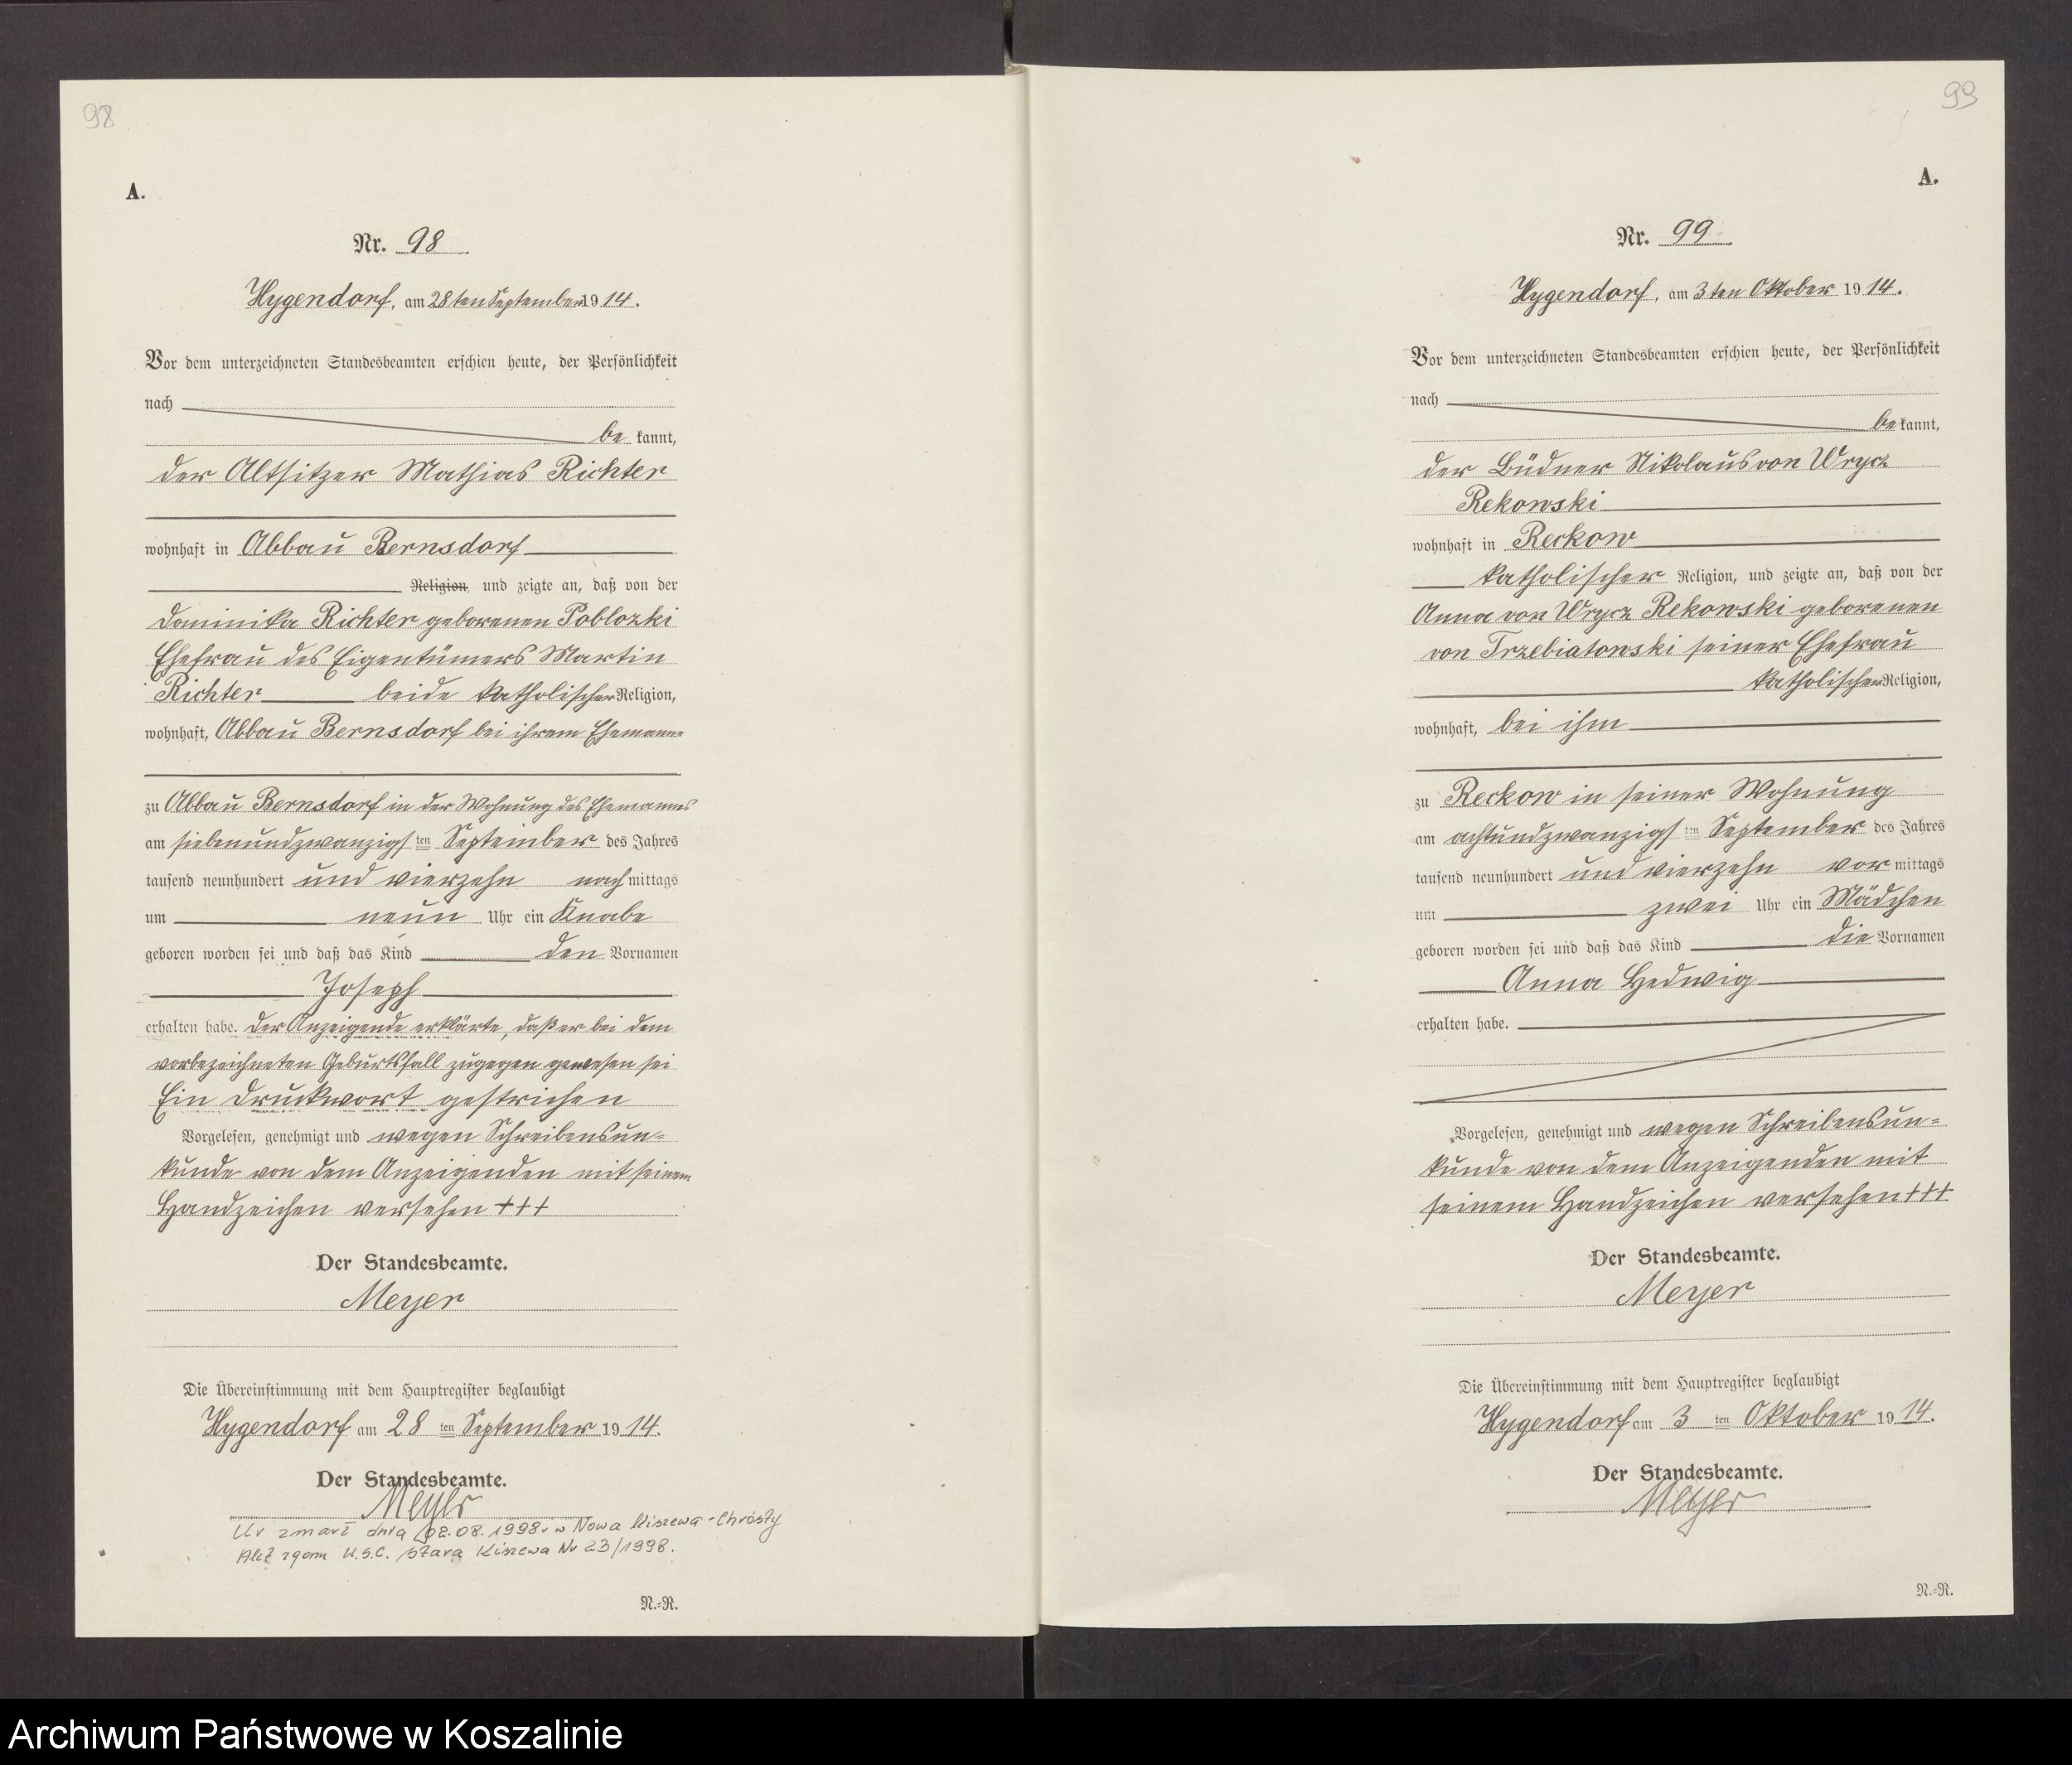 98
A.
Nr. 98
Hygendorf, am 28ten September 1914.
Vor dem unterzeichneten Standesbeamten erschien heute, der Persönlichkeit
nach
be kannt,
der Altsitzer Mathias Richter
wohnhaft in Abbau Bernsdorf
Religion, und zeigte an, daß von der
Dominika Richter geborenen Poblozki
Ehefrau des Eigentümers Martin
Richter beide katholischer Religion,
wohnhaft, Abbau Bernsdorf bei ihrem Ehemanne
zu Abbau Bernsdorf in der Wohnung des Ehemannes
am siebenundzwanzigsten September des Jahres
tausend neunhundert und vierzehn nachmittags
um neun Uhr ein Knabe
geboren worden sei und daß das Kind den Vornamen
Joseph
erhalten habe. Der Anzeigende erklärte, daß er bei dem
vorbezeichneten Geburtsfall zugegen gewesen sei
Ein Druckwort gestrichen
Vorgelesen, genehmigt und wegen Schreibensun-
kunde von dem Anzeigenden mit seinem
Handzeichen versehen +++
Der Standesbeamte.
Meyer
Die Übereinstimmung mit dem Hauptregister beglaubigt
Hygendorf am 28ten September 1914.
Der Standesbeamte.
Meyer
Ur zmarł dnia 02.08.1998r w Nowa Kiszewa-Chrósty
Akt zgonu U.S.C. Stara Kiszewa Nr 23/1998.
N.-R.
99
A.
Nr. 99
Hygendorf, am 3ten Oktober 1914.
Vor dem unterzeichneten Standesbeamten erschien heute, der Persönlichkeit
nach
be kannt,
der Büdner Nikolaus von Wrycz
Rekowski
wohnhaft in Reckow
katholischer Religion, und zeigte an, daß von der
Anna von Wrycz Rekowski geborenen
von Trzebiatowski seiner Ehefrau
katholischer Religion,
wohnhaft, bei ihm
zu Reckow in seiner Wohnung
am achtundzwanzigsten September des Jahres
tausend neunhundert und vierzehn vormittags
um zwei Uhr ein Mädchen
geboren worden sei und daß das Kind die Vornamen
Anna Hedwig
erhalten habe.
Vorgelesen, genehmigt und wegen Schreibensun-
kunde von dem Anzeigenden mit
seinem Handzeichen versehen +++
Der Standesbeamte.
Meyer
Die Übereinstimmung mit dem Hauptregister beglaubigt
Hygendorf am 3ten Oktober 1914.
Der Standesbeamte.
Meyer
N.-R.
Archiwum Państwowe w Koszalinie